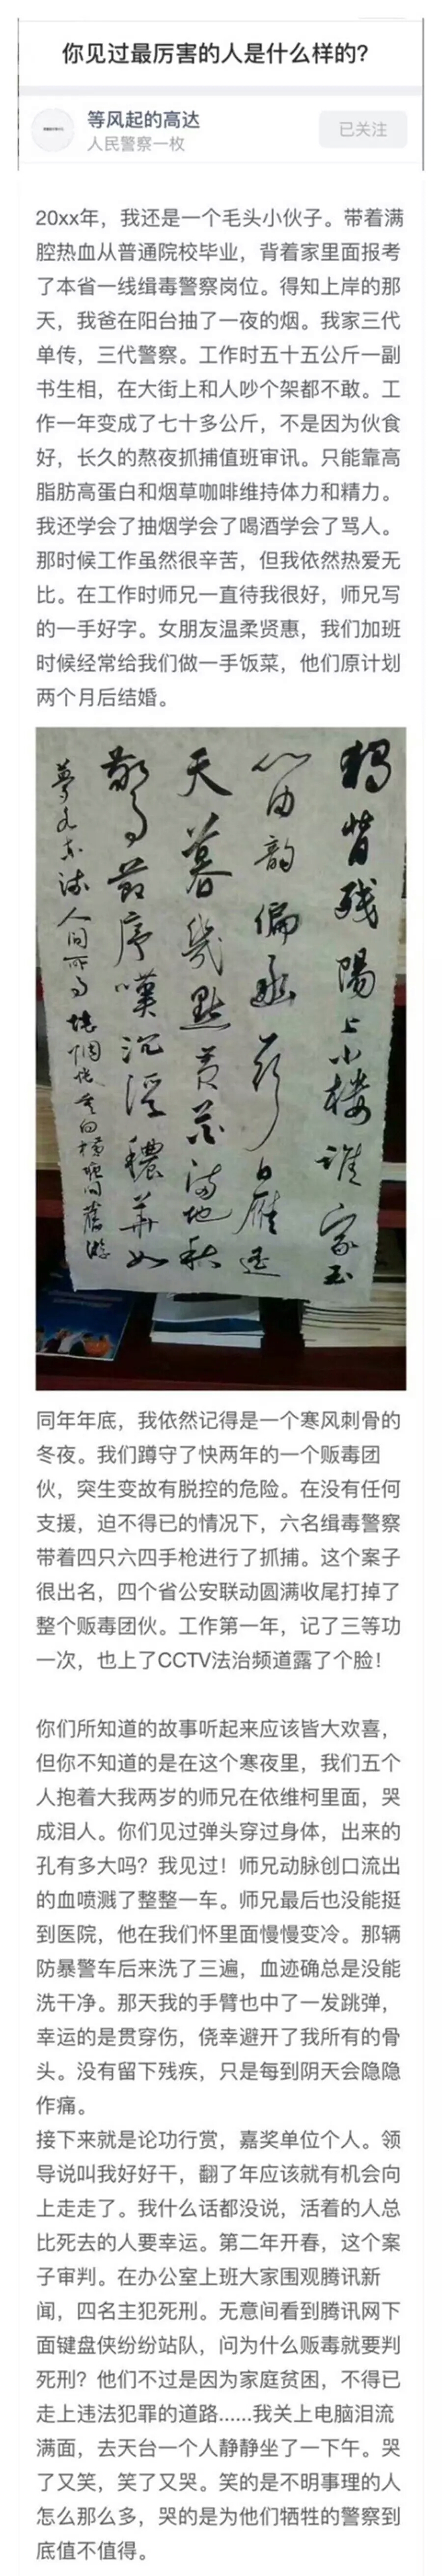 你见过最厉害的人是什么样的?
等风起的高达
人民警察一枚
已关注
20xx年，我还是一个毛头小伙子。带着满
腔热血从普通院校毕业，背着家里面报考
了本省一线缉毒警察岗位。得知上岸的那
天，我爸在阳台抽了一夜的烟。我家三代
单传，三代警察。工作时五十五公斤一副
书生相，在大街上和人吵个架都不敢。工
作一年变成了七十多公斤，不是因为伙食
好，长久的熬夜抓捕值班审讯。只能靠高
脂肪高蛋白和烟草咖啡维持体力和精力。
我还学会了抽烟学会了喝酒学会了骂人。
那时候工作虽然很辛苦，但我依然热爱无
比。在工作时师兄一直待我很好，师兄写
的一手好字。女朋友温柔贤惠，我们加班
时候经常给我们做一手饭菜，他们原计划
两个月后结婚。
独背残阳上小楼谁家玉
韵偏幽一行白雁遥
天暮几点黄花满地秋
惊节序叹沉浮秾华如
梦水东流人间所事堪惆怅莫向横塘问旧游
同年年底，我依然记得是一个寒风刺骨的
冬夜。我们蹲守了快两年的一个贩毒团
伙，突生变故有脱控的危险。在没有任何
支援，迫不得已的情况下，六名缉毒警察
带着四只六四手枪进行了抓捕。这个案子
很出名，四个省公安联动圆满收尾打掉了
整个贩毒团伙。工作第一年，记了三等功
一次，也上了CCTV法治频道露了个脸！
你们所知道的故事听起来应该皆大欢喜，
但你不知道的是在这个寒夜里，我们五个
人抱着大我两岁的师兄在依维柯里面，哭
成泪人。你们见过弹头穿过身体，出来的
孔有多大吗？我见过！师兄动脉创口流出
的血喷溅了整整一车。师兄最后也没能挺
到医院，他在我们怀里面慢慢变冷。那辆
防暴警车后来洗了三遍，血迹确总是没能
洗干净。那天我的手臂也中了一发跳弹，
幸运的是贯穿伤，侥幸避开了我所有的骨
头。没有留下残疾，只是每到阴天会隐隐
作痛。
接下来就是论功行赏，嘉奖单位个人。领
导说叫我好好干，翻了年应该就有机会向
上走走了。我什么话都没说，活着的人总
比死去的人要幸运。第二年开春，这个案
子审判。在办公室上班大家围观腾讯新
闻，四名主犯死刑。无意间看到腾讯网下
面键盘侠纷纷站队，问为什么贩毒就要判
死刑？他们不过是因为家庭贫困，不得已
走上违法犯罪的道路......我关上电脑泪流
满面，去天台一个人静静坐了一下午。哭
了又笑，笑了又哭。笑的是不明事理的人
怎么那么多，哭的是为他们牺牲的警察到
底值不值得。